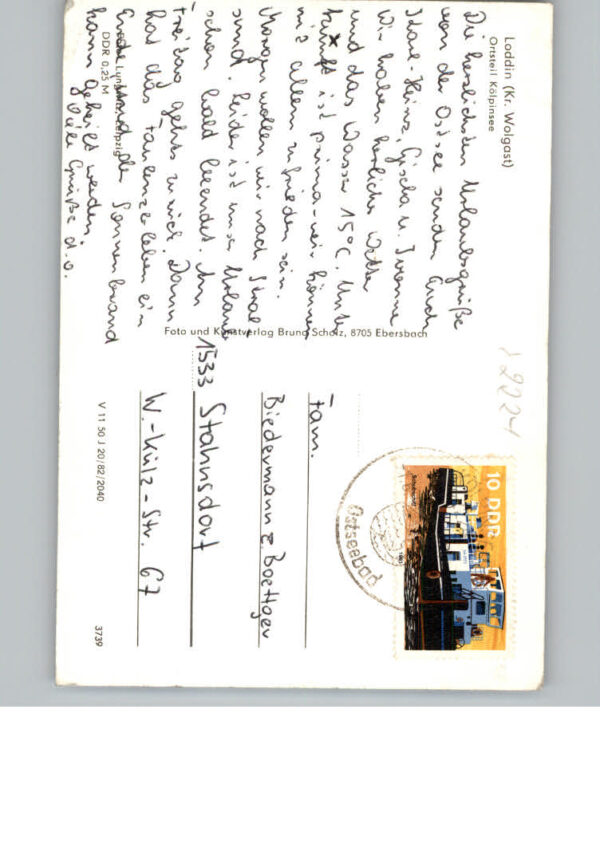 Loddin (Kr. Wolgast)
Ortsteil Kölpinsee
Die herzlichsten Urlaubsgrüße
von der Ostsee senden Euch
Karl-Heinz, Gischa u. Yvonne
Wir haben herrliches Wetter
und das Wasser 15°C. Unter
kunft ist prima - wir können
mit allem zufrieden sein.
Morgen wollen wir nach Stral
sund. Leider ist unser Urlaub
schon bald beendet. Am
Freitag gehts zurück. Dann
hat das Faulenzerleben ein
Ende und der Sonnenbrand
kann geheilt werden.
Viele Grüße d.o.
DDR 0,25 M
Foto und Kunstverlag Bruno Scholz, 8705 Ebersbach
V 11 50 J 20/82/2040
3739
10 DDR
Ostseebad
Fam.
Biedermann z. Boettger
1533 Stahnsdorf
W.-Külz-Str. 67